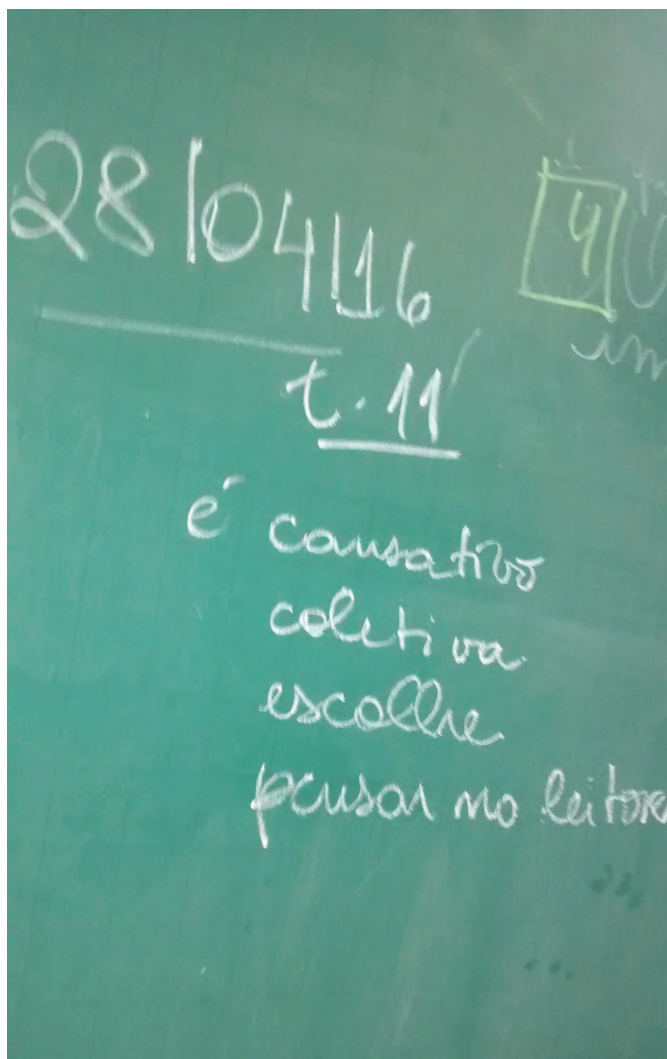 28/04/16
4
t. 11
é causativo
coletiva
escolhe
pensar no leitor